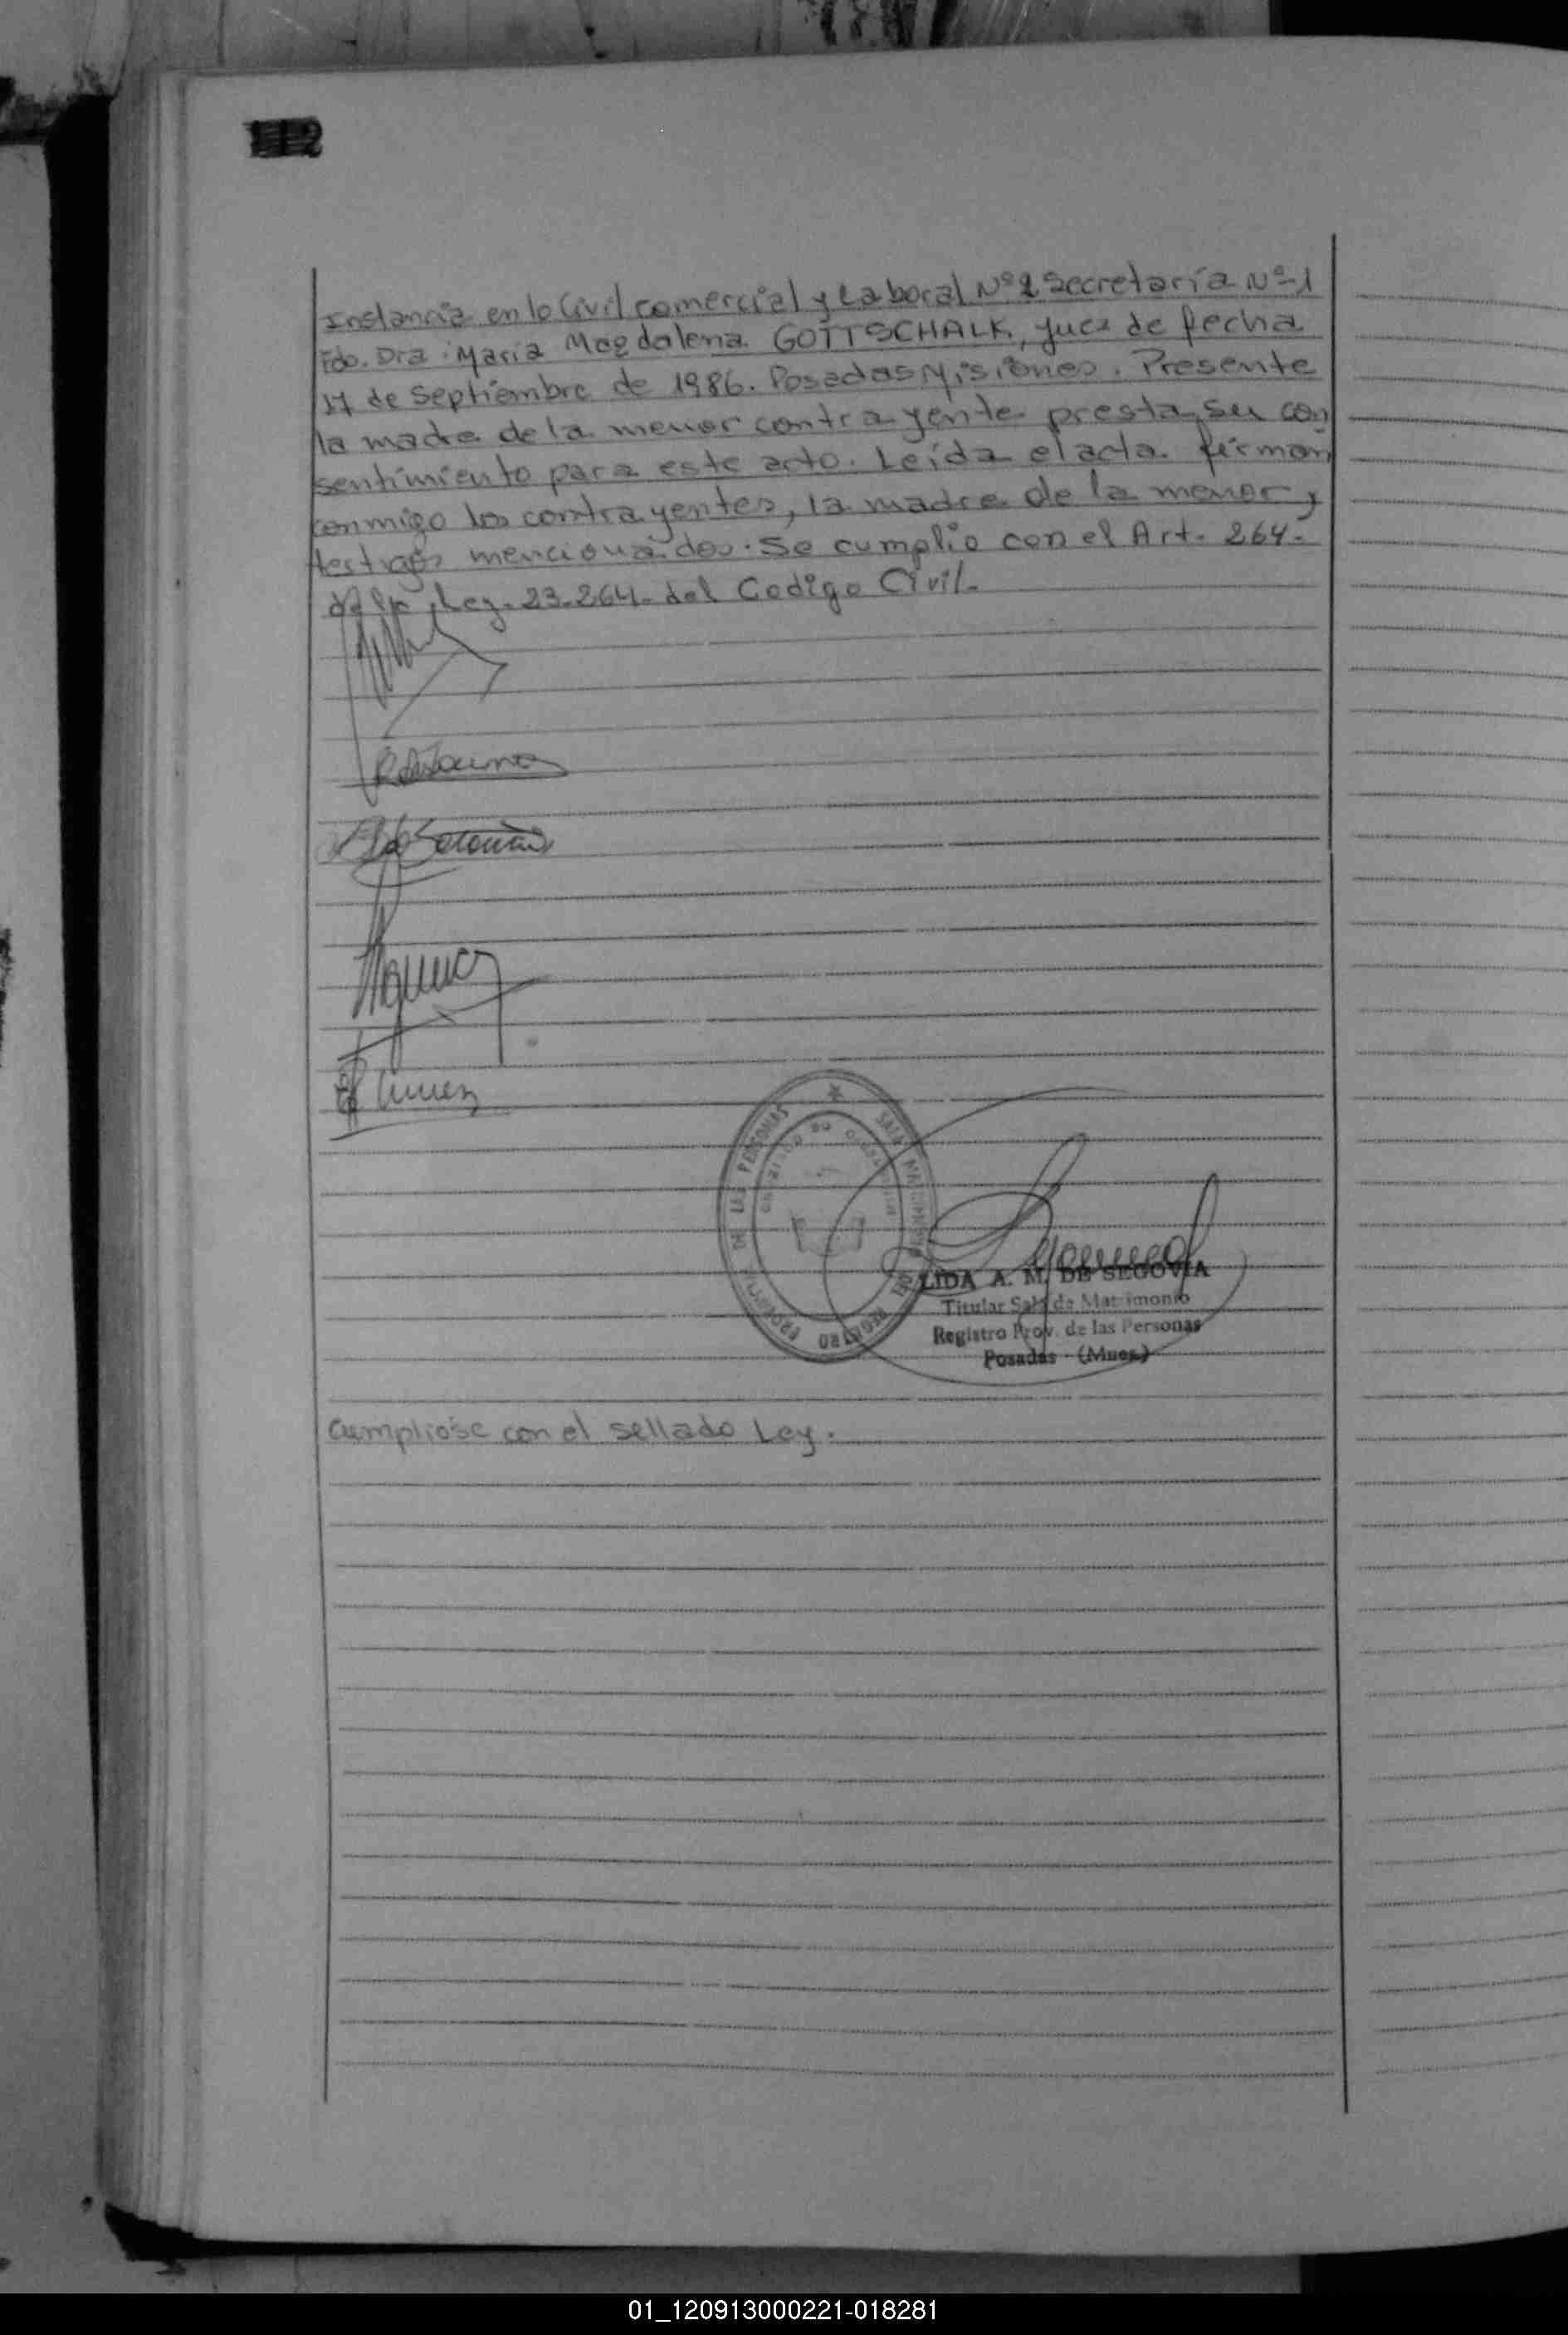 112
Instancia en lo Civil comercial y Laboral Nº 2 Secretaría Nº-1
Fdo. Dra. María Magdalena GOTTSCHALK, juez de fecha
17 de septiembre de 1986. Posadas Misiones. Presente
la madre de la menor contrayente presta su con
sentimiento para este acto. Leída el acta firman
conmigo los contrayentes, la madre de la menor y
testigos mencionados. Se cumplio con el Art. 264-
de la Ley. 23.264. del Codigo Civil-
REGISTRO PROVINCIAL DE LAS PERSONAS
SALA MATRIMONIO
LIDA A. M. DE SEGOVIA
Titular Sala de Matrimonio
Registro Prov. de las Personas
Posadas (Mnes.)
Cumplióse con el sellado Ley.
01_120913000221-018281